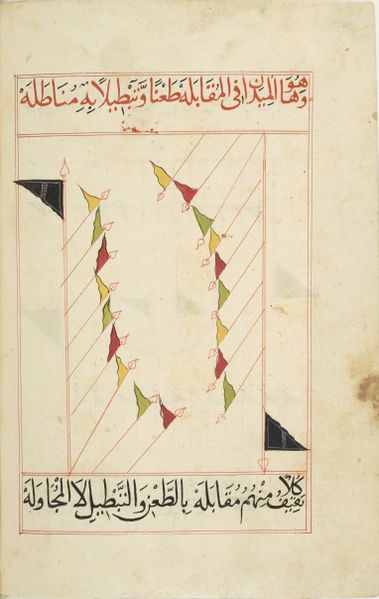 وها هو الميدان فى المقابله طعنا وتبطيلا به مناطله
كلا منهم مقابله بالطعن والتبطيل لا المجاوله